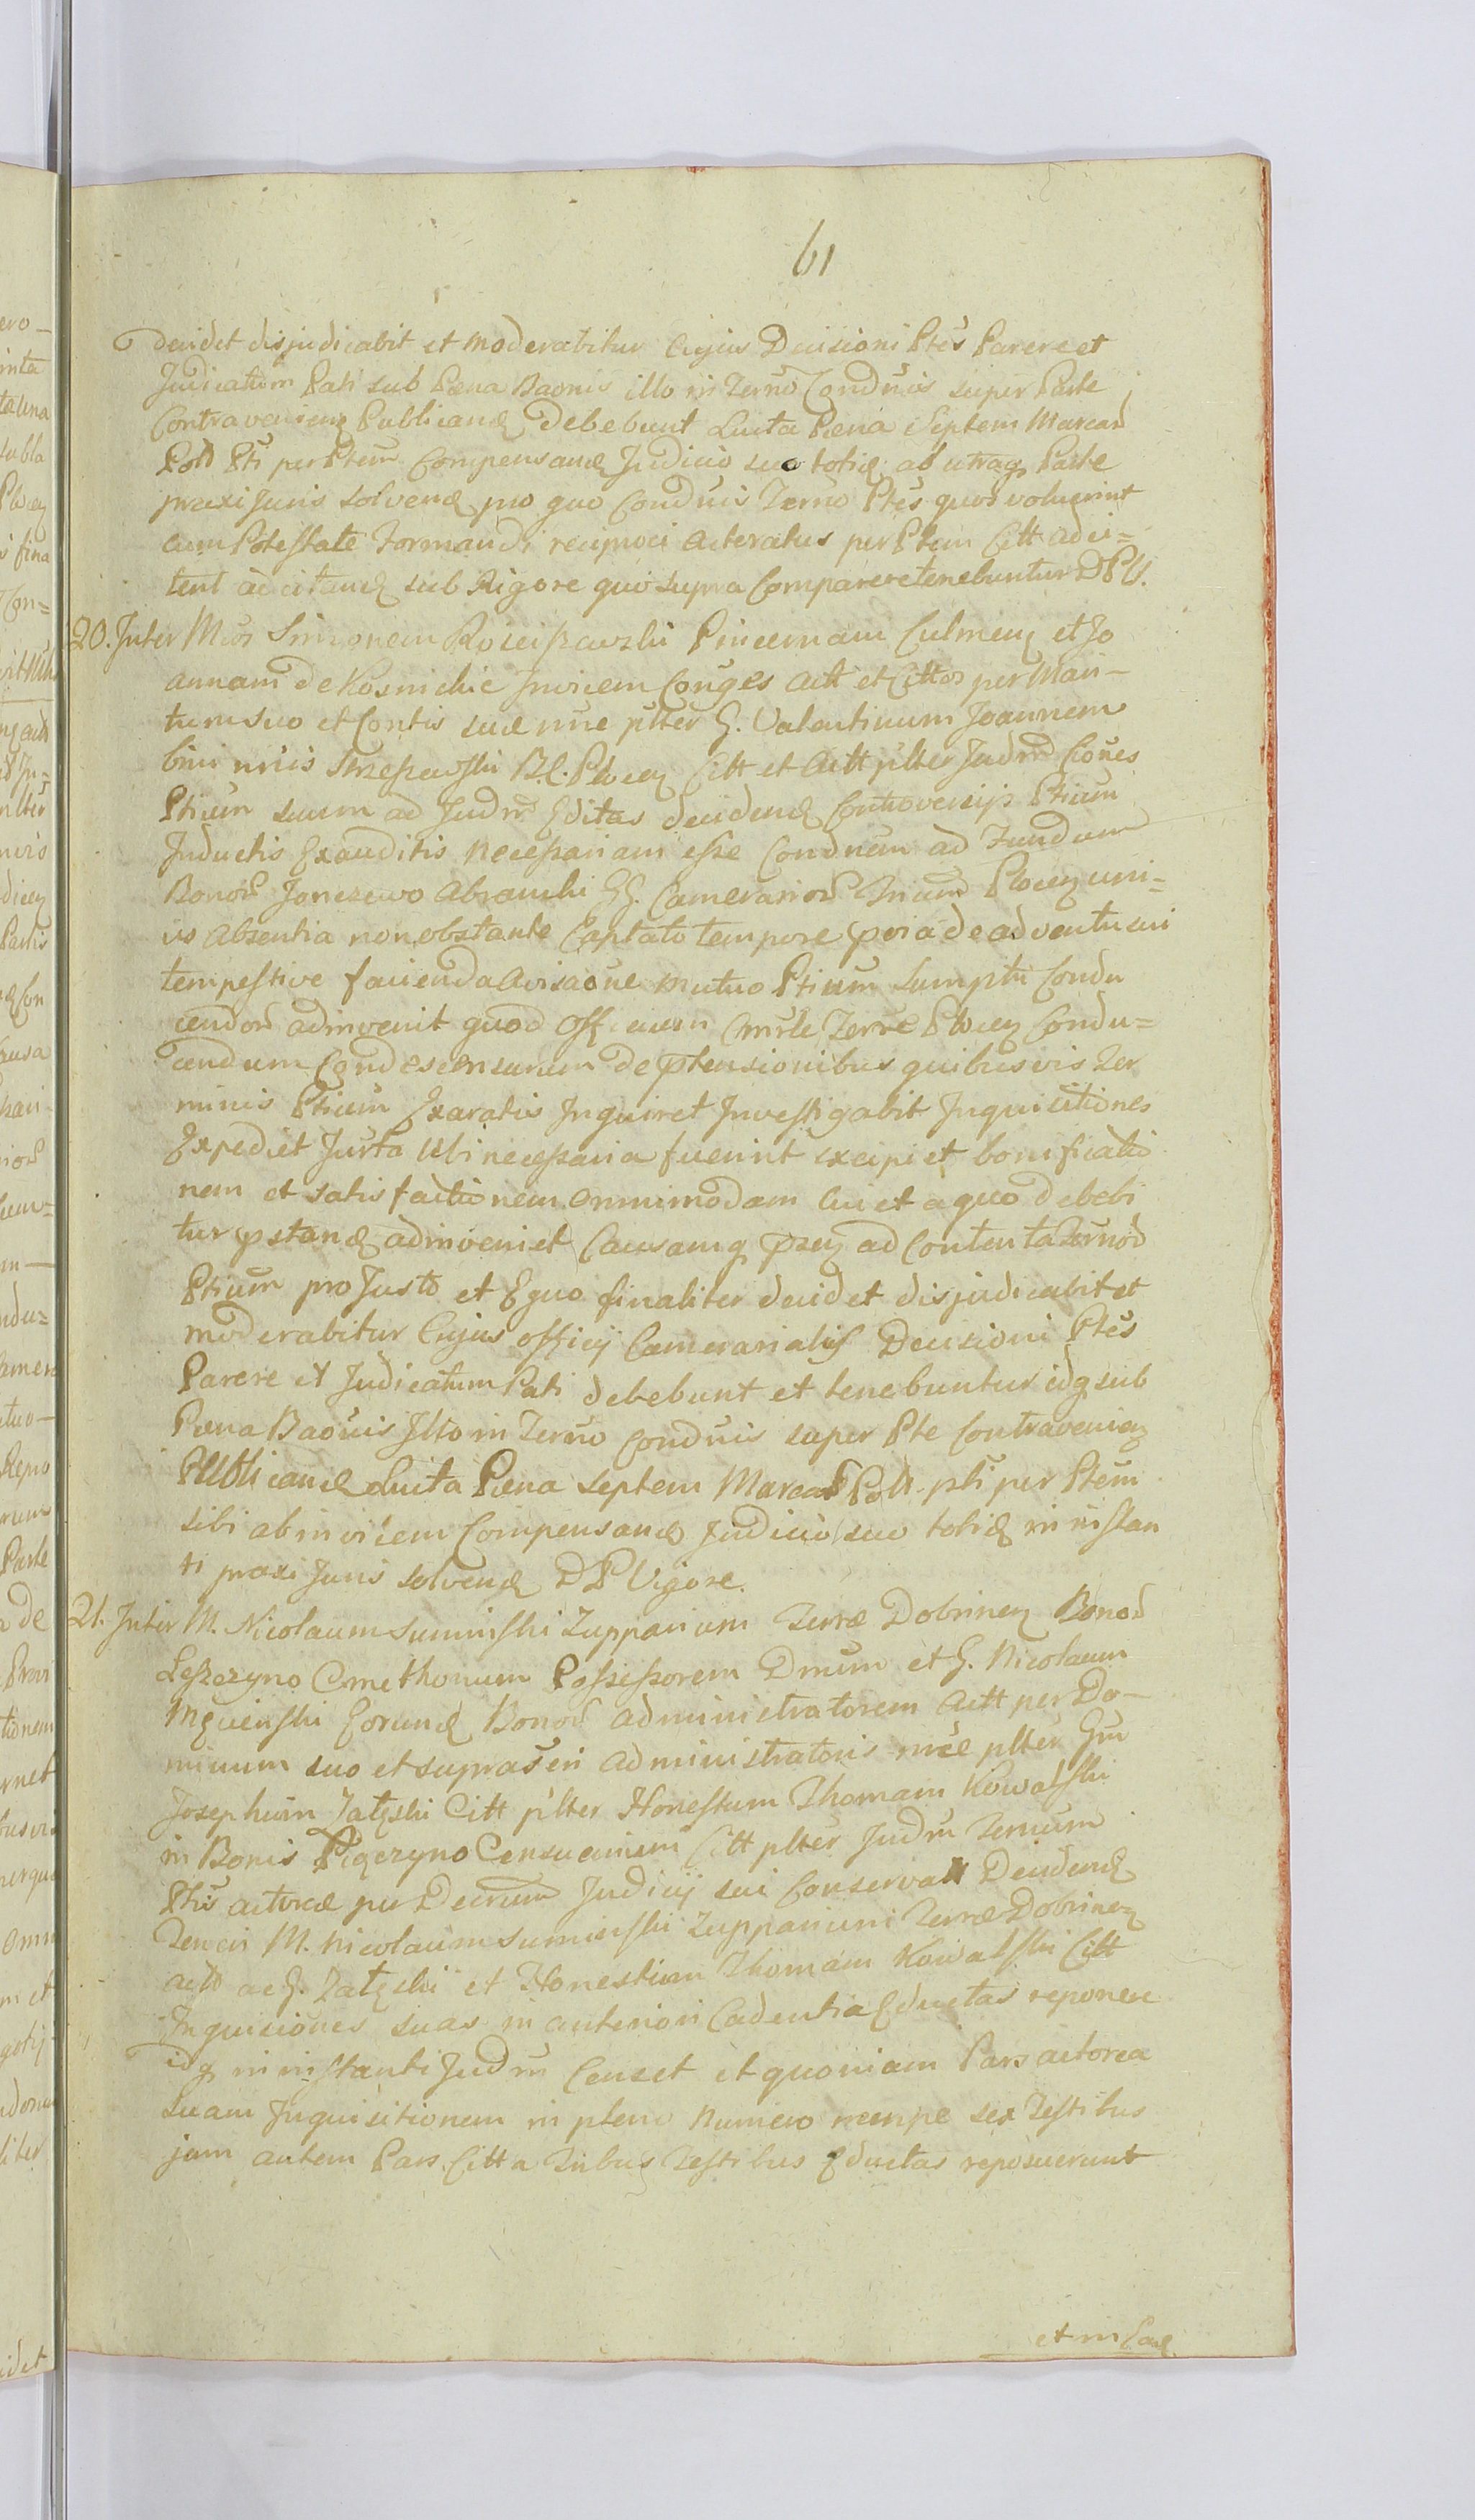 61
decidet disjudicabit et moderabitur Cujus Decisioni Ptes Parere et
Judicatum Pati sub Pæna Baonis illo in Termo Condnis super Parte
Contravenienz Publicand Debebunt Luita Pæna Septem Marcar
Poll Pti per Ptem Compensand Judicio suo totid ab utraq Parte
praxi Juris solvend pro quo Condnis Termo Ptes quos voluerint
cum Potestate Formandi reciproci Actoratus per Ptem Citt adci=
tent adcitand sub Rigore quo supra Comparere tenebuntur DPV.
20. Inter Mcos Simonem Rosciszewski Pincernam Culmenz et Jo
annam de Kosmickie Invicem Conges Actt et Cittos per Mari-
tum suo et Contis suæ nne plter G. Valentinum Joannem
bini nnis Strzeszewski B.C. Plocenz Citt et Actt plter Judm Cones
Ptium suum ad Judm Editas decidend Controversijs Ptium
Inductis Exauditis necessariam esse Condnem ad Fundum
Bonor Jonczewo Abramki GG. Camerarior Trium Plocenz uni=
us Absentia non obstante Captato tempore proia de adventu sui
tempestive facienda Avisaone mutuo Ptium sumptu Condu
cendor adinvenit quod Officium Cmrle Terræ Plocenz Condu=
cendum Condescensurum de ptensionibus quibusvis Ter
minis Ptium Exaratis Inquiret Investigabit Inquisitiones
Expediet Jurta Ubi necessaria fuerint excipiet bonificatio
nem et satisfactionem omnimodam Cui et a quo debebi
tur pstand adinveniet Causamq prnz ad Contenta Termor
Ptium pro Justo et Equo finaliter decidet disjudicabit et
moderabitur Cujus officij Camerarialis Decisioni Ptes
Parere et Judicatum Pati debebunt et tenebuntur idq sub
Pæna Baonis Illo in Termo Condnis super Pte Contravenienz
Publicand Luita Pæna septem Marcar Poll pti per Ptem
sibi ab invicem Compensand Judicio suo totid in instan
ti praxi Juris solvend DP Vigore.
21. Inter M. Nicolaum Suminski Zupparium Terræ Dobrinenz Bonor
Leszczyno Cmethonum Possessorem Dnum et G. Nicolaum
Mquienski Eorund Bonor administratorem Actt per Do-
minum suo et suprascri administratoris nne plter Gm
Josephum Zatęski Citt plter Honestum Thomam Kowalski
in Bonis Pięczyno Censuarium Citt plter Judm Terium
Ptis actoreæ per Decrum Judicij sui Conservatt Decidend
Teneri M. Nicolaum Suminski Zupparium Terræ Dobrinenz
actt ac G. Zatęski et Honestum Thomam Kowalski Citt
Inquisiones suas in anteriori Cadentia Eductas reponere
idq in instanti Judm Censet et quoniam Pars actorea
suam Inquisitionem in pleno numero nempe sex Testibus
jam autem Pars Citta Tribus Testibus Eductas reposuerunt
et in Ead